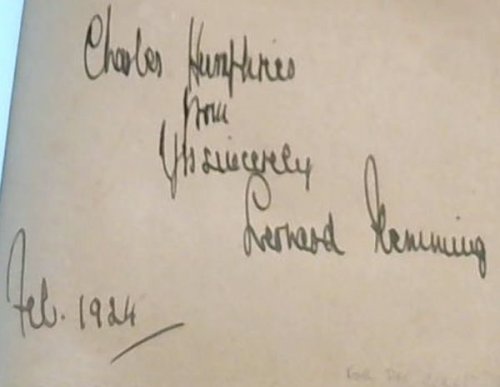 Charles Humphries
from
Yrs sincerely
Leonard Flemming
Feb. 1924